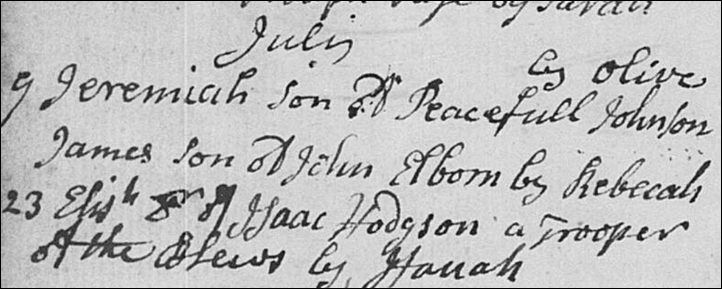 by Sarah
Julij
by Olive
9 Jeremiah son of Peacefull Johnson
James son of John Elborn by Rebecah
23 Elisb Dr of Isaac Hodgson a Trooper
of the Blews by Hanah